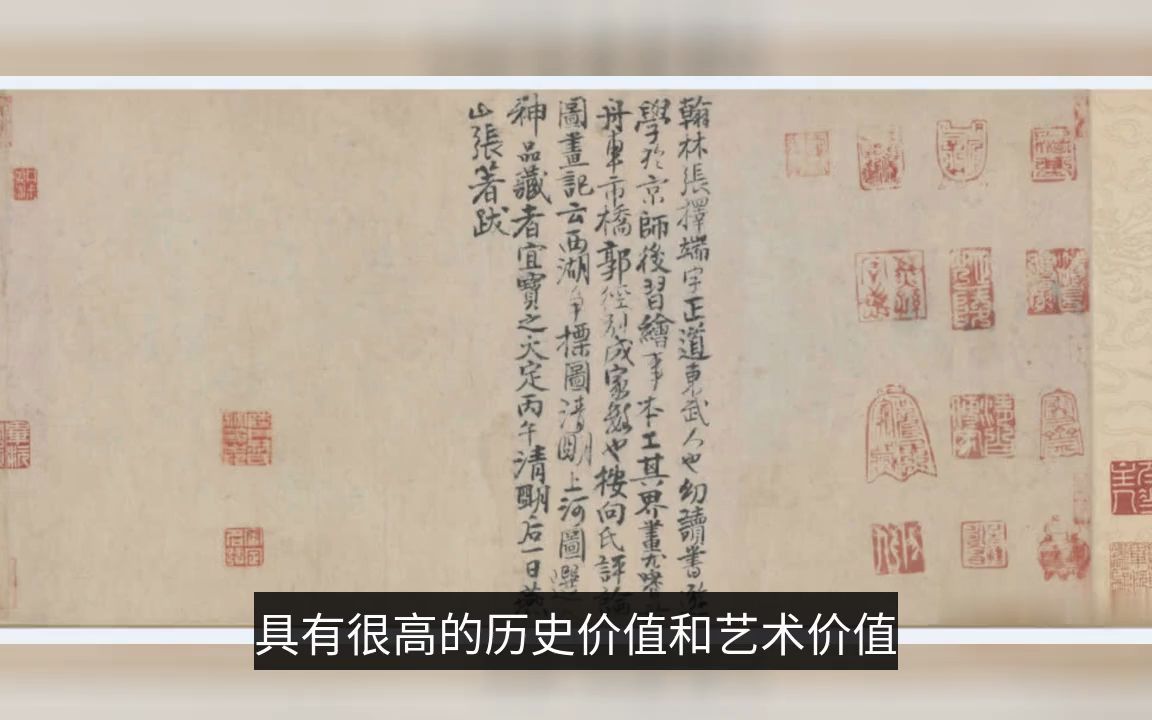 翰林張擇端字正道東武人也幼讀書遊
學於京師後習繪事本工其界畫尤嗜
舟車市橋郭徑別成家數也按向氏評論
圖畫記云西湖爭標圖清明上河圖選
神品藏者宜寶之大定丙午清明后一日燕
山張著跋
具有很高的历史价值和艺术价值